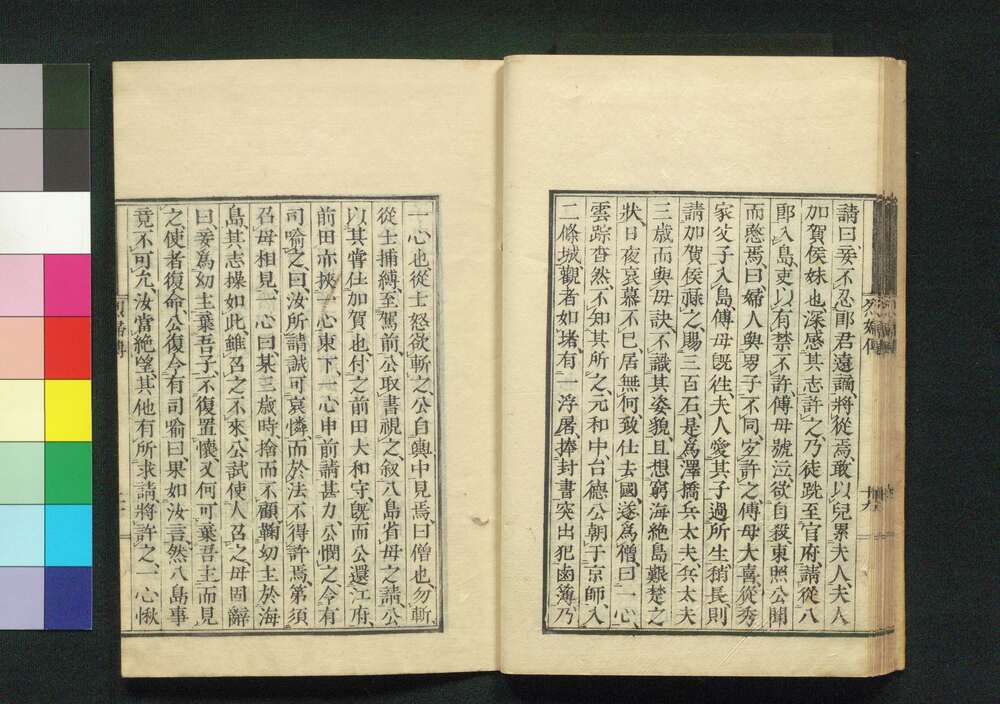 請曰、妾不忍郎君遠謫、將從焉、敢以兒累夫人、夫人
加賀侯妹也、深感其志許之、乃徒跣至官府請從八
郎入島、吏以有禁不許、傅母號泣、欲自殺、東照公聞
而愍焉曰、婦人與男子不同、宜許之、傅母大喜、從秀
家父子入島、傅母既徃、夫人愛其子過所生、稍長則
請加賀侯祿之、賜三百石、是爲澤橋兵太夫、兵太夫
三歳而與母訣、不識其姿貌、且想窮海絶島艱楚之
狀、日夜哀慕不已、居無何、致仕去國、遂爲僧、曰一心、
雲踪杳然、不知其所之、元和中、台德公朝于京師、入
二條城、觀者如堵、有一浮屠、捧封書突出犯鹵簿、乃
烈婦傳
十九
一心也、從士怒欲斬之、公自輿中見焉、曰僧也、勿斬、
從士捕縛、至駕前、公取書視之、叙八島省母之請、公
以其嘗仕加賀也、付之前田大和守、既而公還江府、
前田亦挾一心東下、一心申前請甚力、公憫之、令有
司喻之曰、汝所請誠可哀憐、而於法不得許焉、第須
召母相見、一心曰、某三歳時、捨而不顧、鞠幼主於海
島、其志操如此、雖召之不來、公試使人召之、母固辭
曰、妾爲幼主棄吾子、不復置懷、又何可棄吾主而見
之、使者復命、公復令有司喻曰、果如汝言、然八島事
竟不可允、汝當絶望、其他有所求請將許之、一心愀